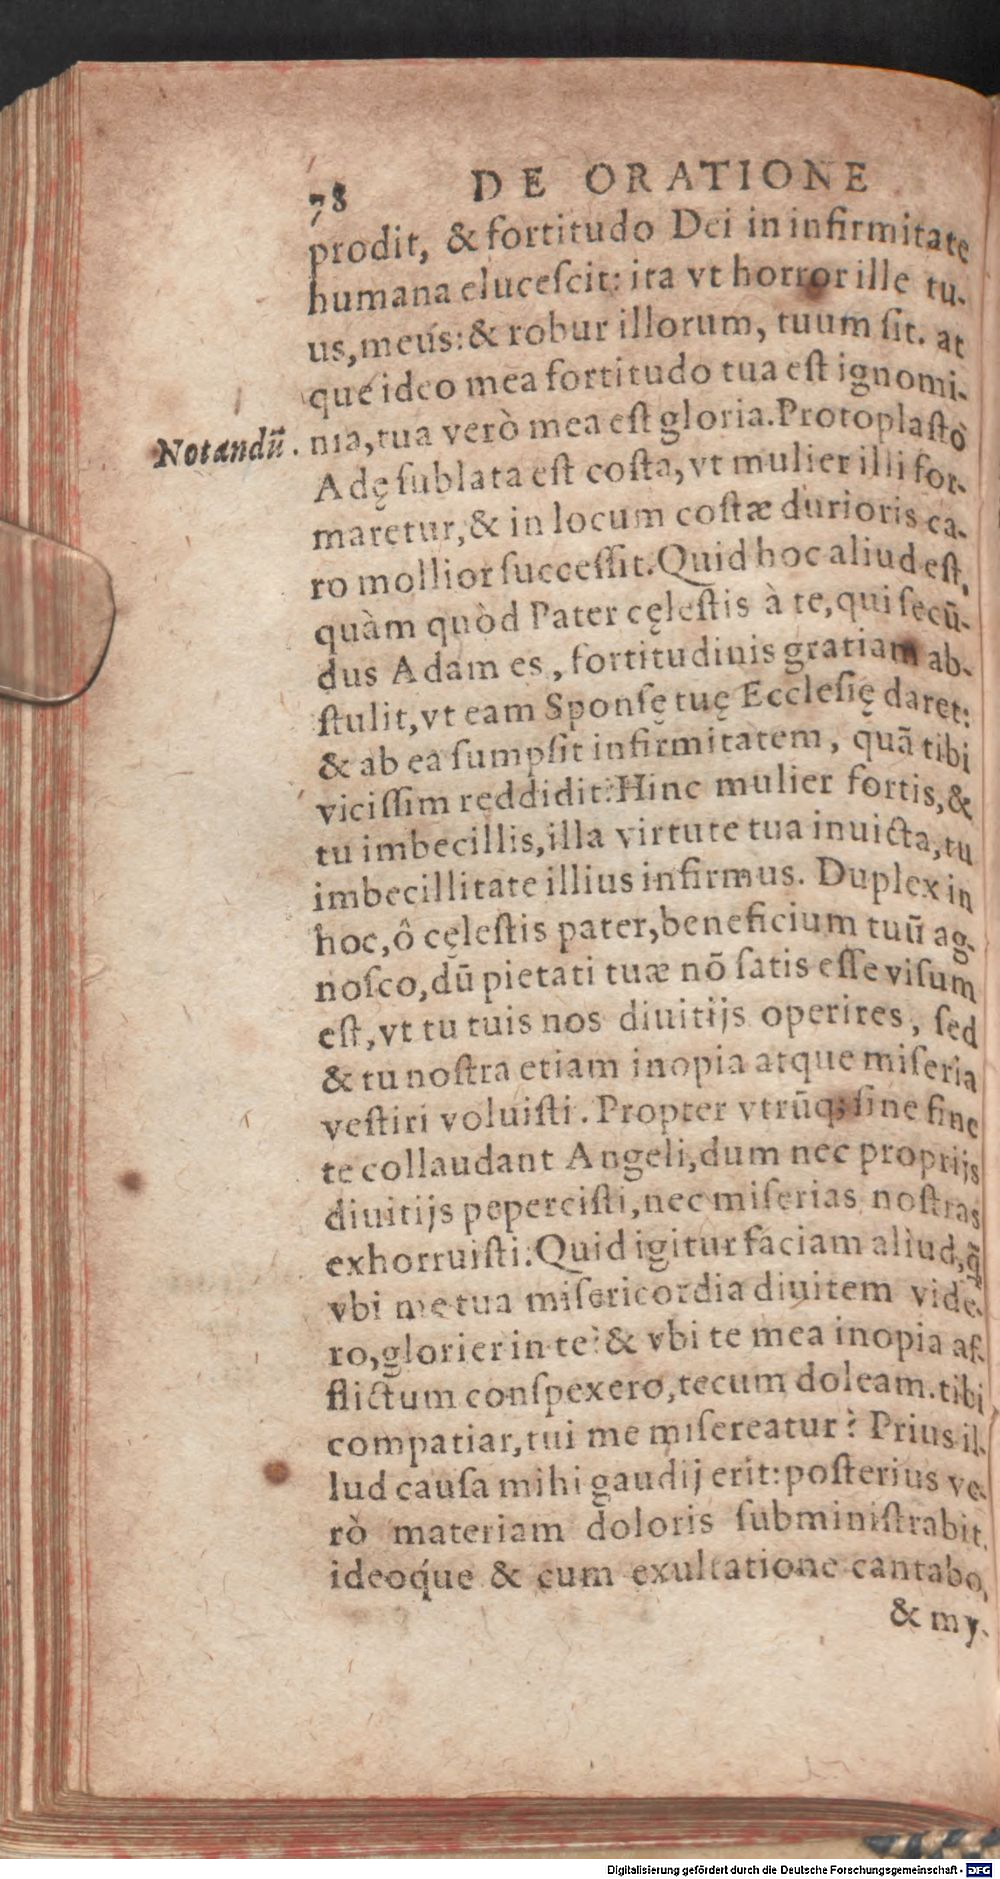 78 DE ORATIONE
prodit, & fortitudo Dei in infirmitate
humana eluceſcit: ita vt horror ille tu-
us, meus: & robur illorum, tuum ſit. at
que ideo mea fortitudo tua eſt ignomi-
Notandū. nia, tua verò mea eſt gloria. Protoplaſto
Adę ſublata eſt coſta, vt mulier illi for-
maretur, & in locum coſtæ durioris ca-
ro mollior ſucceſſit. Quid hoc aliud eſt,
quàm quòd Pater cęleſtis à te, qui ſecū-
dus Adam es, fortitudinis gratiam ab-
ſtulit, vt eam Sponſę tuę Eccleſię daret:
& ab ea ſumpſit infirmitatem, quã tibi
viciſſim reddidit: Hinc mulier fortis, &
tu imbecillis, illa virtute tua inuicta, tu
imbecillitate illius infirmus. Duplex in
hoc, ô cęleſtis pater, beneficium tuū ag-
noſco, dū pietati tuæ nõ ſatis eſſe viſum
eſt, vt tu tuis nos diuitijs operires, ſed
& tu noſtra etiam inopia atque miſeria
veſtiri voluiſti. Propter vtrūq; ſine fine
te collaudant Angeli, dum nec proprijs
diuitijs pepercíſti, nec miſerias noſtras
exhorruiſti. Quid igitur faciam aliud, q̃
vbi me tua miſericordia diuitem vide-
ro, glorier in te: & vbi te mea inopia af-
flictum conſpexero, tecum doleam. tibi
compatiar, tui me miſereatur? Prius il-
lud cauſa mihi gaudij erit: poſterius ve-
rò materiam doloris ſubminiſtrabit.
ideoq́ue & cum exultatione cantabo,
& my-
Digitalisierung gefördert durch die Deutsche Forschungsgemeinschaft - DFG